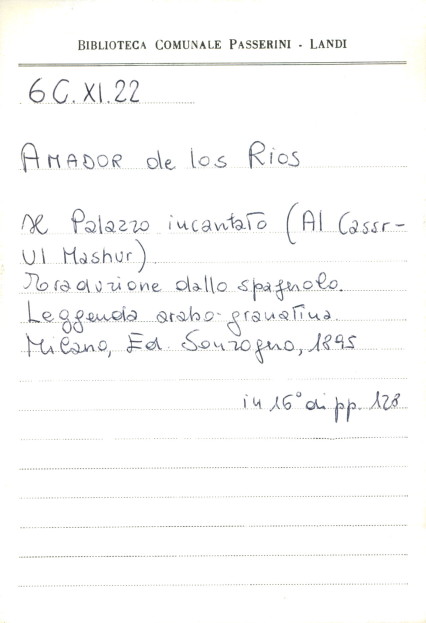 BIBLIOTECA COMUNALE PASSERINI - LANDI
6 C. XI. 22
AMADOR de los Rios
Il Palazzo incantato (Al Cassr-
Ul Mashur)
Traduzione dallo spagnolo.
Leggenda arabo-granatina.
Milano, Ed. Sonzogno, 1895
in 16° di pp. 128